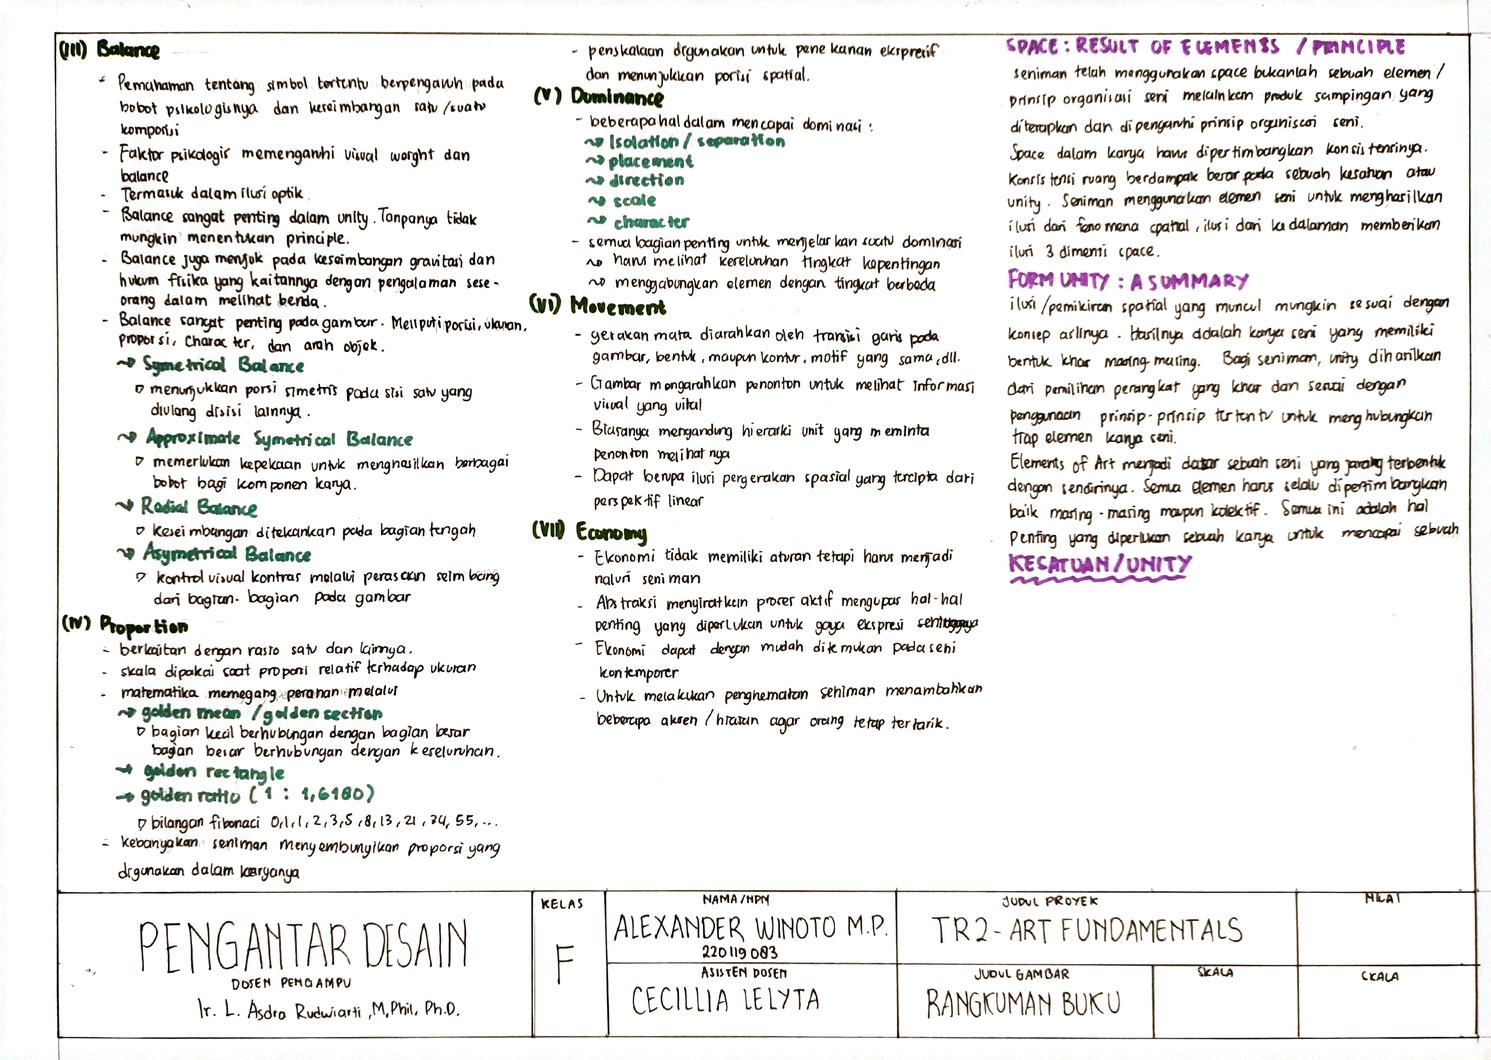 (III) Balance
- Pemahaman tentang simbol tertentu berpengaruh pada
bobot psikologisnya dan keseimbangan satu /suatu
komposisi
- Faktor psikologis memengaruhi visual weight dan
balance
- Termasuk dalam ilusi optik.
- Balance sangat penting dalam unity. Tanpanya tidak
mungkin menentukan principle.
- Balance juga menjok pada keseimbangan gravitasi dan
hukum fisika yang kaitannya dengan pengalaman sese-
orang dalam melihat benda.
- Balance sangat penting pada gambar. Meliputi posisi, ukuran,
proporsi, character, dan arah objek.
~> Symetrical Balance
▷ menunjukkan porsi simetris pada sisi satu yang
diulang disisi lainnya.
~> Approximate Symetrical Balance
▷ memerlukan kepekaan untuk menghasilkan berbagai
bobot bagi komponen karya.
~> Radial Balance
▷ Keseimbangan ditekankan pada bagian tengah
~> Asymetrical Balance
▷ kontrol visual kontras melalui perasaan seimbang
dari bagian-bagian pada gambar
(IV) Proportion
- berkaitan dengan rasio satu dan lainnya.
- skala dipakai saat proporsi relatif terhadap ukuran
- matematika memegang peranan melalui
~> golden mean /golden section
▷ bagian kecil berhubungan dengan bagian besar
bagian besar berhubungan dengan keseluruhan.
→ golden rectangle
→ golden ratio (1 : 1,6180)
▷ bilangan fibonaci 0,1,1,2,3,5,8,13,21,34,55,...
- kebanyakan seniman menyembunyikan proporsi yang
digunakan dalam karyanya
- penskalaan digunakan untuk penekanan ekspresif
dan menunjukkan porisi spatial.
(V) Dominance
- beberapa hal dalam mencapai dominasi :
~> Isolation / separation
~> placement
~> direction
~> scale
~> character
- semua bagian penting untuk menjelaskan suatu dominasi
~> harus melihat keseluruhan tingkat kepentingan
~> menggabungkan elemen dengan tingkat berbeda
(VI) Movement
- gerakan mata diarahkan oleh transisi garis pada
gambar, bentuk, maupun kontur, motif yang sama, dll.
- Gambar mengarahkan penonton untuk melihat informasi
visual yang vital
- Biasanya mengandung hierarki unit yang meminta
penonton melihatnya
- Dapat berupa ilusi pergerakan spasial yang tercipta dari
perspektif linear
(VII) Economy
- Ekonomi tidak memiliki aturan tetapi harus menjadi
naluri seniman
- Abstraksi menyiratkan proses aktif mengupas hal-hal
penting yang diperlukan untuk gaya ekspresi sehingga
- Ekonomi dapat dengan mudah ditemukan pada seni
kontemporer
- Untuk melakukan penghematan seniman menambahkan
beberapa aksen /hiasan agar orang tetap tertarik.
SPACE : RESULT OF ELEMENTS / PRINCIPLE
seniman telah menggunakan space bukanlah sebuah elemen /
prinsip organisasi seni melainkan produk sampingan yang
diterapkan dan dipengaruhi prinsip organisasi seni.
Space dalam karya harus dipertimbangkan konsistensinya.
Konsistensi ruang berdampak besar pada sebuah kesatuan atau
unity. Seniman menggunakan elemen seni untuk menghasilkan
ilusi dari fenomena spatial, ilusi dari kedalaman memberikan
ilusi 3 dimensi space.
FORM UNITY : A SUMMARY
ilusi /pemikiran spatial yang muncul mungkin sesuai dengan
konsep aslinya. Hasilnya adalah karya seni yang memiliki
bentuk khas masing-masing. Bagi seniman, unity dihasilkan
dari pemilihan perangkat yang khas dan sesuai dengan
penggunaan prinsip-prinsip tertentu untuk menghubungkan
tiap elemen karya seni.
Elements of Art menjadi dasar sebuah seni yang jarang terbentuk
dengan sendirinya. Semua elemen harus selalu dipertimbangkan
baik masing-masing maupun kolektif. Semua ini adalah hal
Penting yang diperlukan sebuah karya untuk mencapai sebuah
KESATUAN/UNITY
PENGANTAR DESAIN
DOSEN PENGAMPU
Ir. L. Asdra Rudwiarti ,M,Phil, Ph.D.
KELAS
F
NAMA/NPM
ALEXANDER WINOTO M.P.
220119083
ASISTEN DOSEN
CECILLIA LELYTA
JUDUL PROYEK
TR2- ART FUNDAMENTALS
JUDUL GAMBAR
RANGKUMAN BUKU
SKALA
NILAI
SKALA